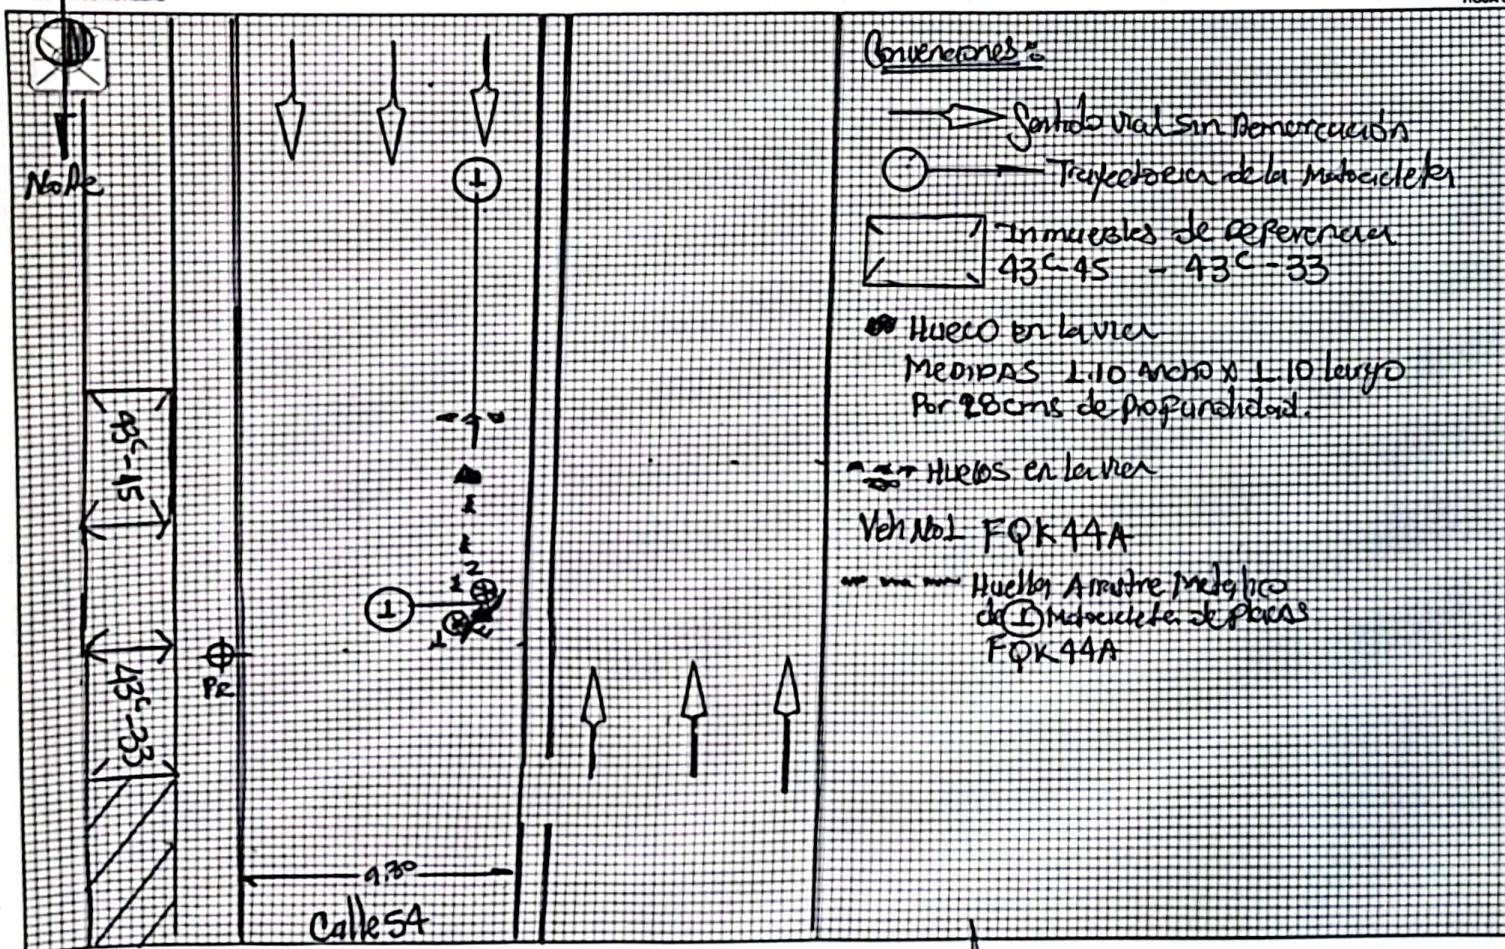 Norte
1
43C-45
1
2
1
1
2
1
1
PR
43C-33
9.30
Calle 54
Convenciones:
Sentido vial sin Demarcación
Trayectoria de la Motocicleta
Inmuebles de Referencia
43C-45 - 43C-33
Hueco en la via
MEDIDAS 1.10 Ancho x 1.10 largo
Por 28 cms de Profundidad.
Huecos en la via
Veh No 1 FQK44A
Huella Arrastre Metalico
de 1 Motocicleta de placas
FQK44A